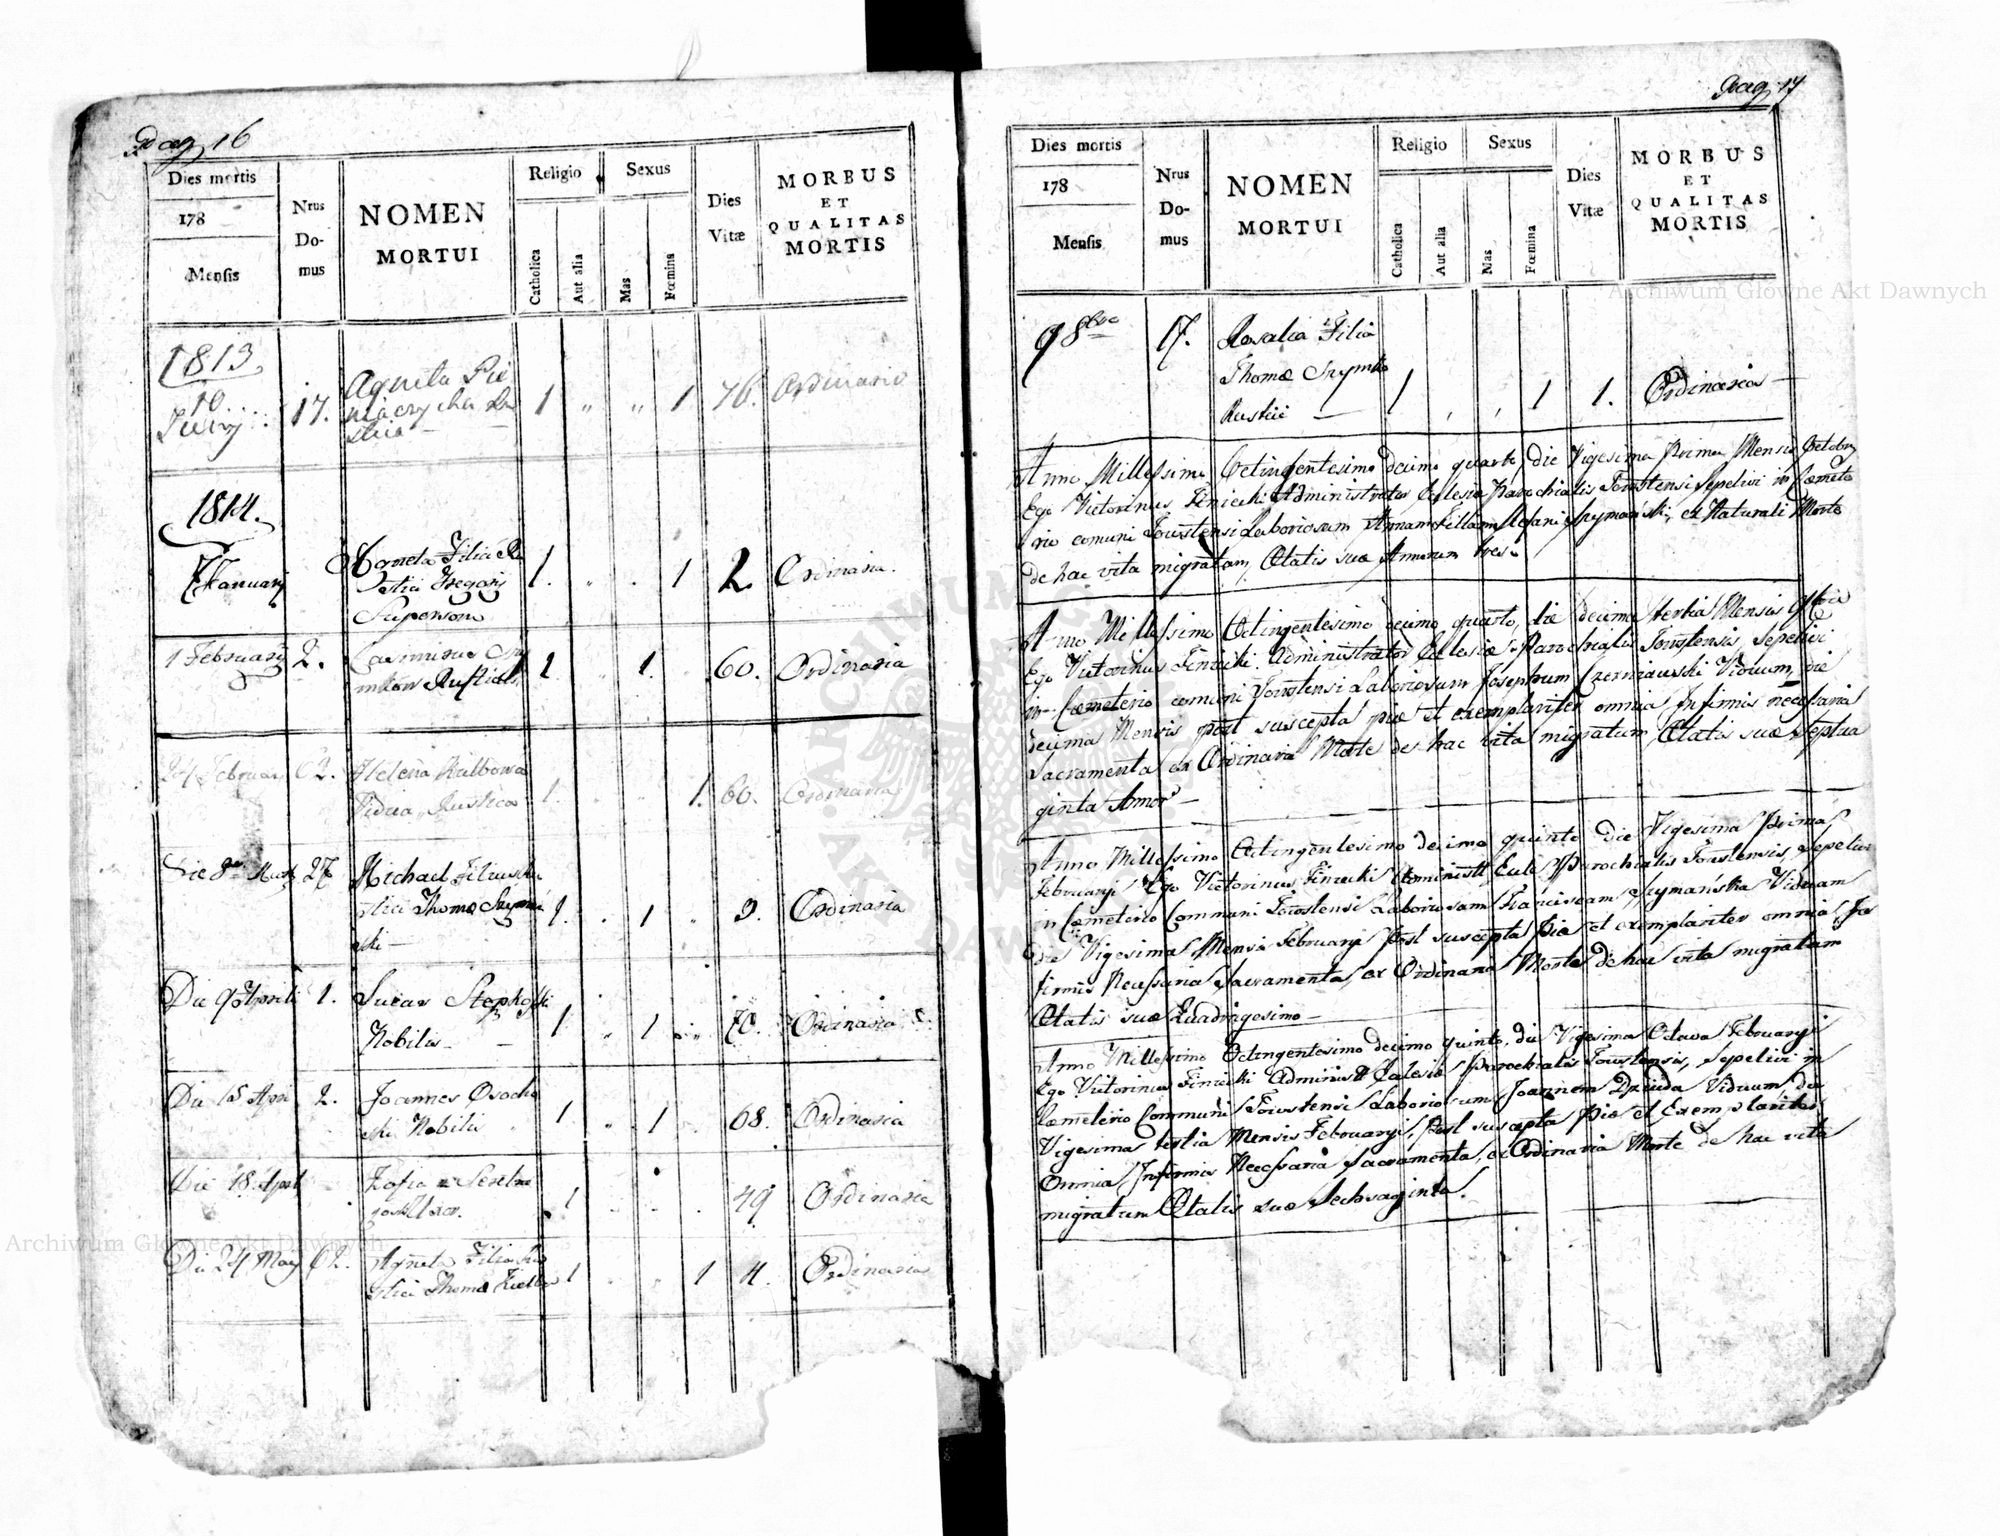 Pag. 16
Dies mortis
178
Mensis
Nrus
Do-
mus
NOMEN
MORTUI
Religio
Catholica
Aut alia
Sexus
Mas
Fœmina
Dies
Vitæ
MORBUS
ET
QUALITAS
MORTIS
1813.
10
17.
Agneta
1 " " 1 76. Ordinaria
1814.
7 Januarij
Agneta Filia Ru
stici Gregorij
Superson
1. 1 2. Ordinaria.
1 Februarij 2. Casimirus
Rustic
1 1. 60. Ordinaria
24 Februarij 62. Helena Kulbowa
Vidua, Rustica
1. 1. 60. Ordinaria
Die 8va Martij 27 Michael Filius Ru
stici Thomæ Szymań
ski —
1. 1 3. Ordinaria
Die 9 Aprili 1. Lucas
Nobilis —
1 1 70. Ordinaria
Die 15 Apri 2. Joannes Osucho
ski Nobilis
1 1 68. Ordinaria
Die 18. Apri
Zofia
1 49 Ordinaria
Die 24 May 62. Agneta Filia Ru
stici Thomæ
1 1 4. Ordinaria
Pag. 17
Dies mortis
178
Mensis
Nrus
Do-
mus
NOMEN
MORTUI
Religio
Catholica
Aut alia
Sexus
Mas
Fœmina
Dies
Vitæ
MORBUS
ET
QUALITAS
MORTIS
9 8bre 17. Rosalia Filia
Thomæ Szymko
Rustici —
1 , , 1 1. Ordinaria —
Anno Millessimo Octingentesimo decimo quarto, die Vigesima prima Mensis Octobr
Ego Victorinus Finiecki Administrator Eclesiæ Parochialis Joustensi Sepelivi in Cœmete
rio comuni Joustensi Laboriosum Annam Filiam Stefani Szymanski, ex Naturali Morte
de hac vita migratam, Ætatis suæ Annorum tres.
Anno Millessimo Octingentesimo decimo quarto, die decima tertia Mensis 9bris
Ego Victorinus Finiecki Administrator Eclesiæ Parochialis Joustensis, Sepelivi
in Cœmeterio comuni Joustensi Laboriosum Josephum Czerniawski Viduum, die
decima Mensis post suscepta piæ et exemplariter omnia Infirmis necessaria
Sacramenta ex Ordinaria Morte de hac vita migratum, Ætatis suæ Septua
ginta Annor —
Anno Millessimo Octingentesimo decimo quinto die Vigesima Prima
Februarij Ego Victorinus Finiecki Administ. Eccle Parochialis Joustensis, Sepelivi
in Cœmeterio Communi Joustensi Laboriosam Franciscam Szymańska Viduam
die Vigesima Mensis Februarij Post suscepta Piæ et exemplariter omnia In
firmis Necessaria Sacramenta, ex Ordinaria Morte de hac vita migratam
Ætatis suæ Quadrigesimo —
Anno Millessimo Octingentesimo decimo quinto, die Vigesima Octava Februarij
Ego Victorinus Finiecki Administ Eclesiæ Parochialis Joustensis, Sepelivi in
Cœmeterio Communi Joustensi Laboriosum Joannem Dziuda Viduum, die
Vigesima tertia Mensis Februarij, Post suscepta Piæ et Exemplariter
Omnia Infirmis Necessaria Sacramenta, ex Ordinaria Morte de hac vita
migratum Ætatis suæ Sechsaginta.
Archiwum Główne Akt Dawnych
Archiwum Główne Akt Dawnych